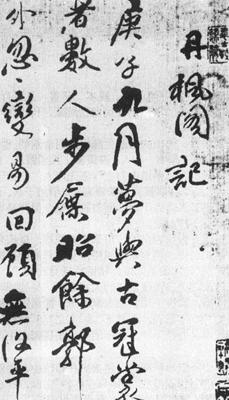 丹楓閣記
庚子九月夢與古冠裳
者數人步屧昭餘郭
外忽〻變易回顧無復平